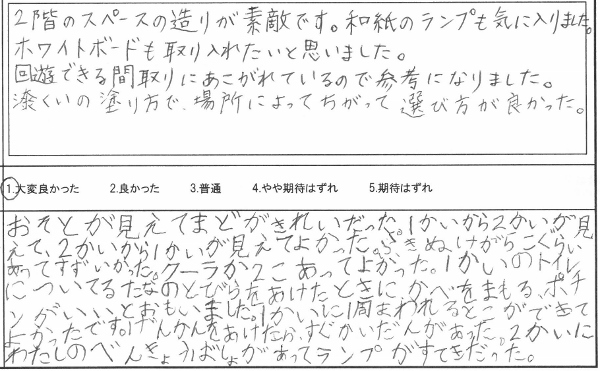 2階のスペースの造りが素敵です。和紙のランプも気に入りました。
ホワイトボードも取り入れたいと思いました。
回遊できる間取りにあこがれているので参考になりました。
漆くいの塗り方で、場所によってちがって選び方が良かった。
1.大変良かった 2.良かった 3.普通 4.やや期待はずれ 5.期待はずれ
おそとが見えてまどがきれいだった。1かいから2かいが見
えて、2かいから1かいが見えてよかった。ふきぬけがら こくらい
あってすずしかった。クーラが2こあってよかった。1かいのトイレ
についてるたなのとびらをあけたときにかべをまもる、ポチ
ンがいいとおもいました。1かいに1周まわれるとこができて
よかったです。げんかんをあけたら、すぐかいだんがあった。2かいに
わたしのべんきょうばしょがあってランプがすてきだった。